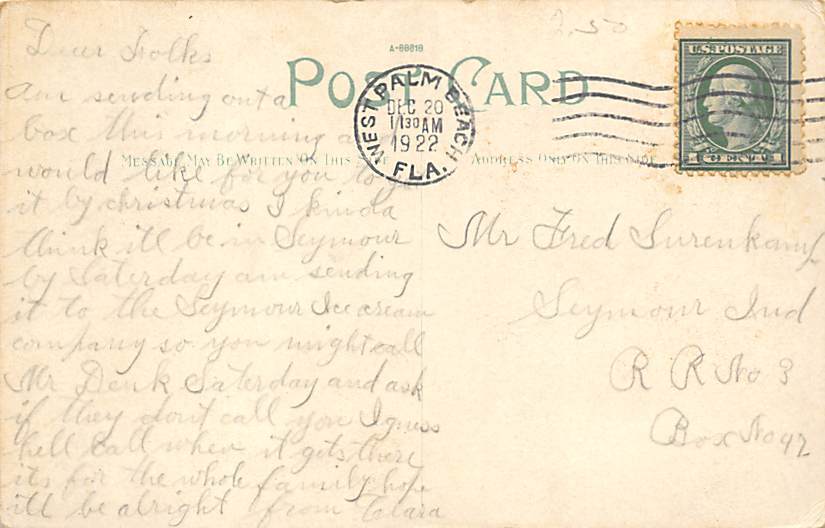 2.50
Dear Folks
A-66618
POST CARD
am sending out a
box this morning and
would like for you to get
it by christmas I kinda
think it'll be in Seymour
by Saterday am sending
it to the Seymour Ice cream
company so you might call
Mr Denk Saterday and ask
if they dont call you I guess
hell call when it gets there
its for the whole family hope
itll be alright from Clara
MESSAGE MAY BE WRITTEN ON THIS SIDE
ADDRESS ONLY ON THIS SIDE
WEST PALM BEACH
DEC 20
1130 AM
1922
FLA.
U.S. POSTAGE
1 CENT 1
Mr Fred Surenkamp
Seymour Ind
R R No 3
Box No 92